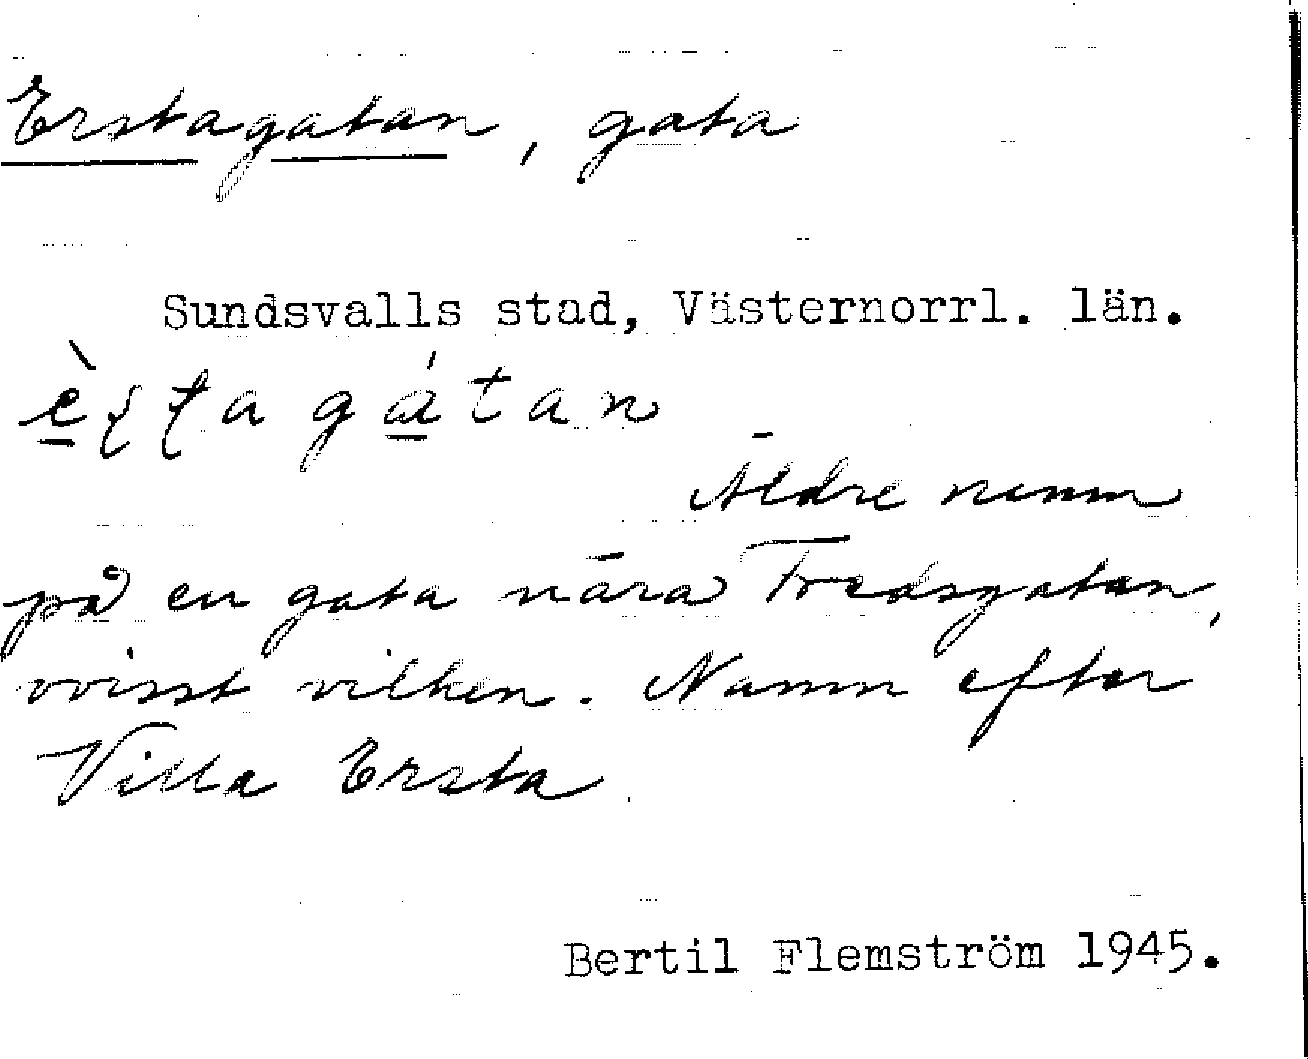 Erstagatan, gata
Sundsvalls stad, Västernorrl. län.
Äldre namn
på en gata nära Fredsgatan,
ovisst vilken. Namn efter
Villa Ersta
Bertil Flemström 1945.